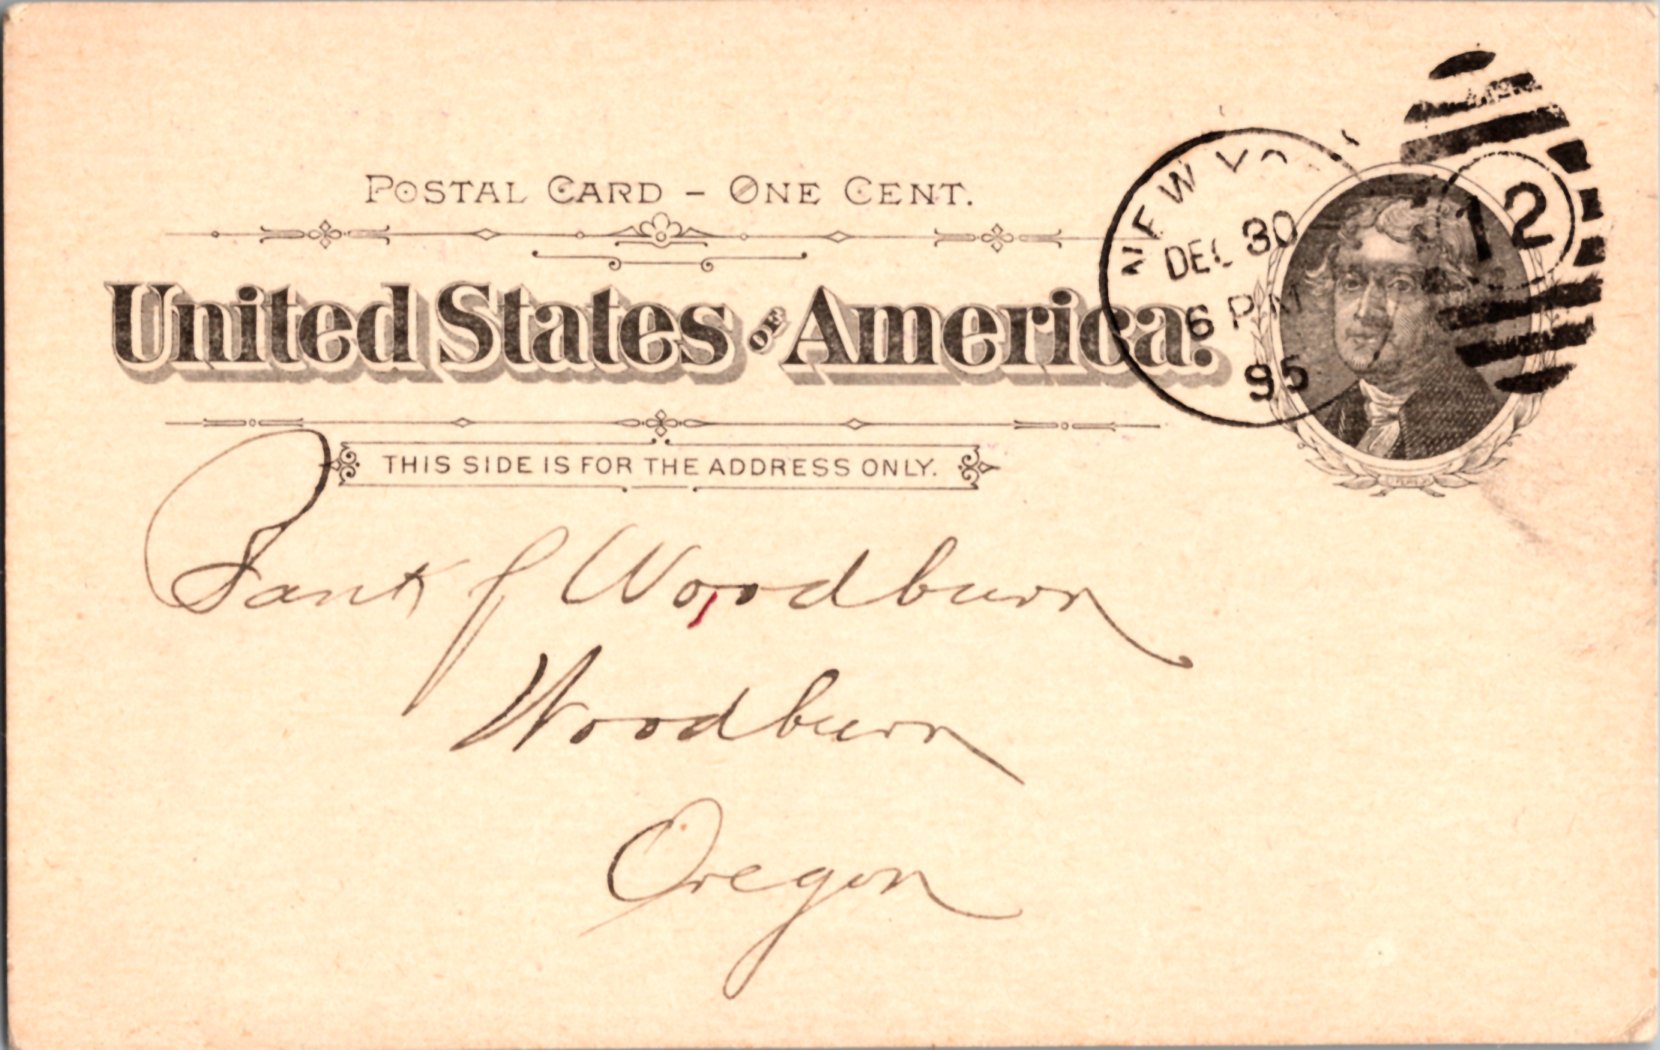 POSTAL CARD – ONE CENT.
United States OF America.
THIS SIDE IS FOR THE ADDRESS ONLY.
NEW YO
DEC 30
6 PM
95
12
Bank of Woodburn
Woodburn
Oregon